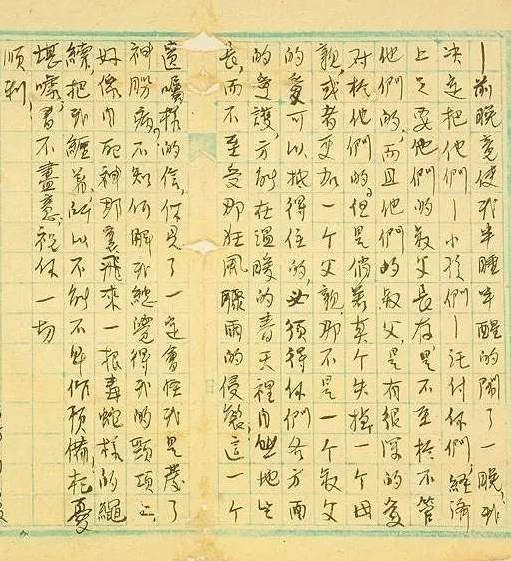 —前晚竟使我半睡半醒的鬧了一晚,我
決定把他們—小孩們—託付你們,經濟
上只要他們的叔父長存,是不至於不管
他們的,而且他們的叔父,是有很深的愛
对於他們的。但是倘若真个失掉一个母
親,或者更加一个父親,那不是一个叔父
的愛可以抵得住的,必須得你們各方面
的愛護,方能在温暖的春天裡自由地生
長,而不至受那狂風驟雨的侵襲。這一个
遺囑樣的信,你見了一定會怪我是發了
神經病,不知何解我總覺得我的頸項上,
好像自死神那裏飛來一根毒蛇樣的繩
索,把我纏着,所以不能不早作預備,杞憂
堪嚎,書不盡意,祝你一切
順利,